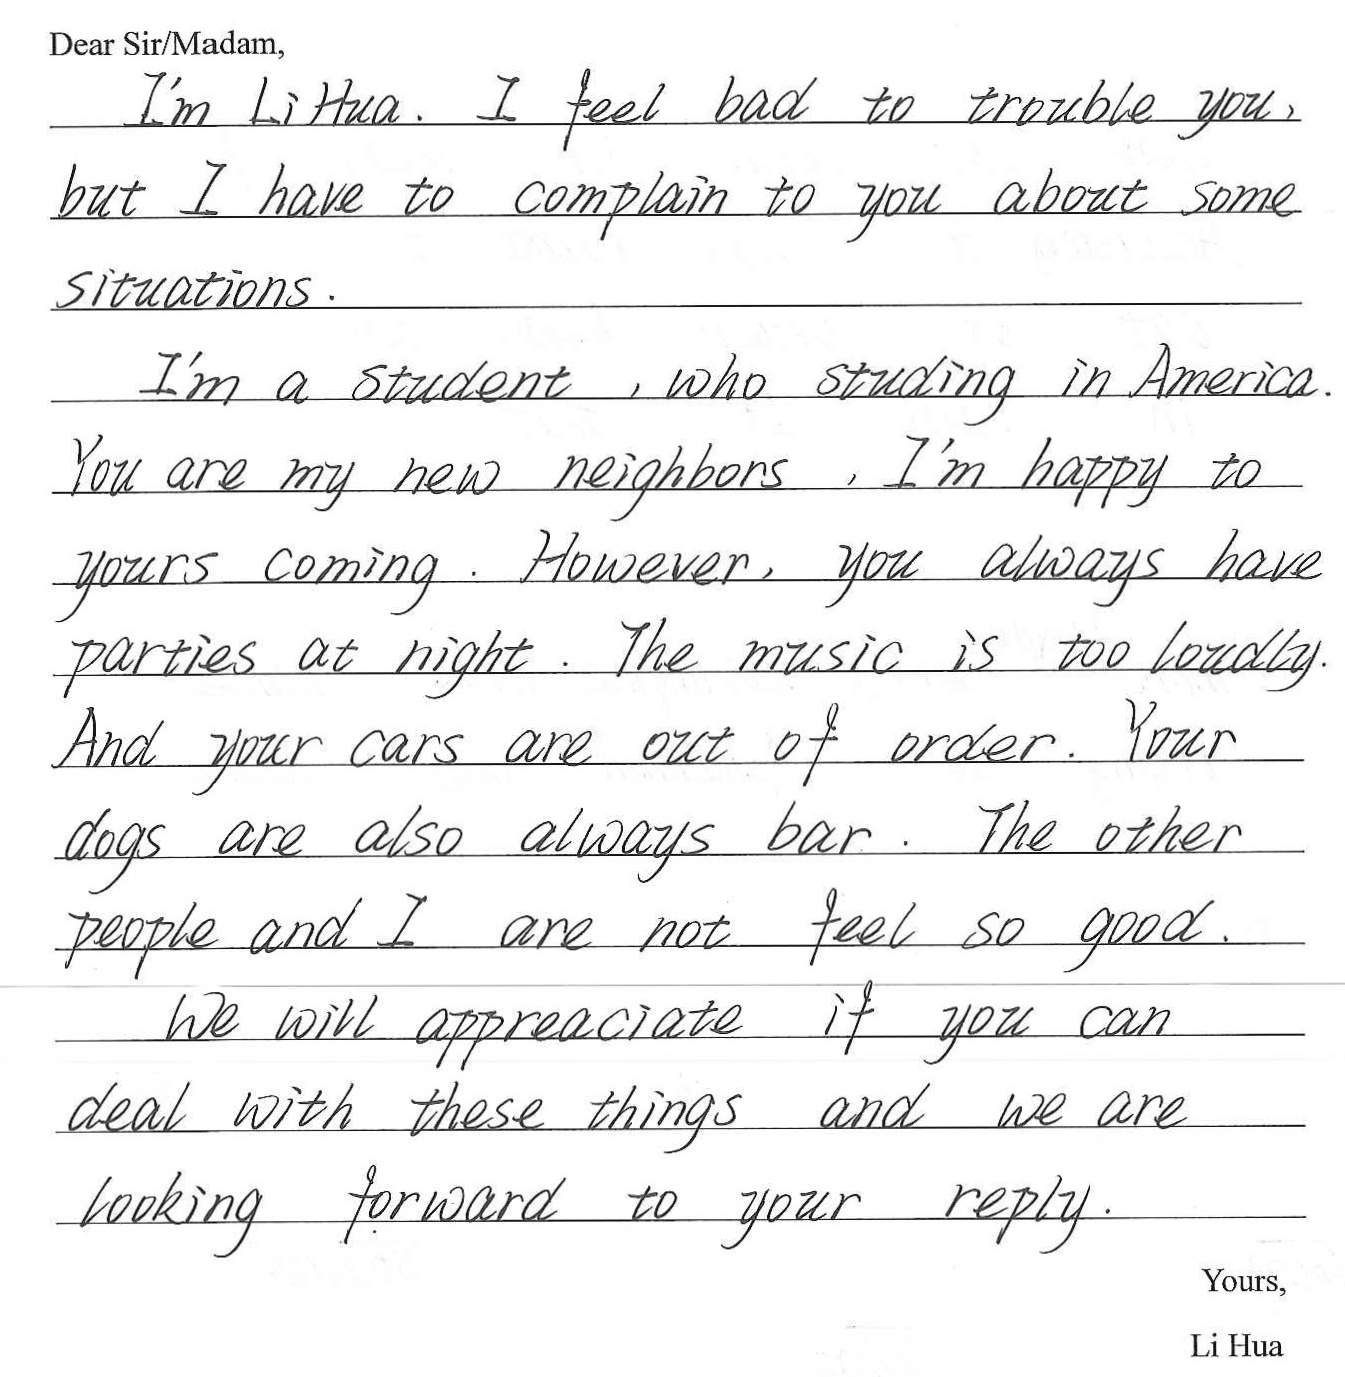 Dear Sir/Madam,
I'm Li Hua. I feel bad to trouble you,
but I have to complain to you about some
situations.
I'm a student, who studing in America.
You are my new neighbors, I'm happy to
yours coming. However, you always have
parties at night. The music is too loudly.
And your cars are out of order. Your
dogs are also always bar. The other
people and I are not feel so good.
We will appreaciate if you can
deal with these things and we are
looking forward to your reply.
Yours,
Li Hua